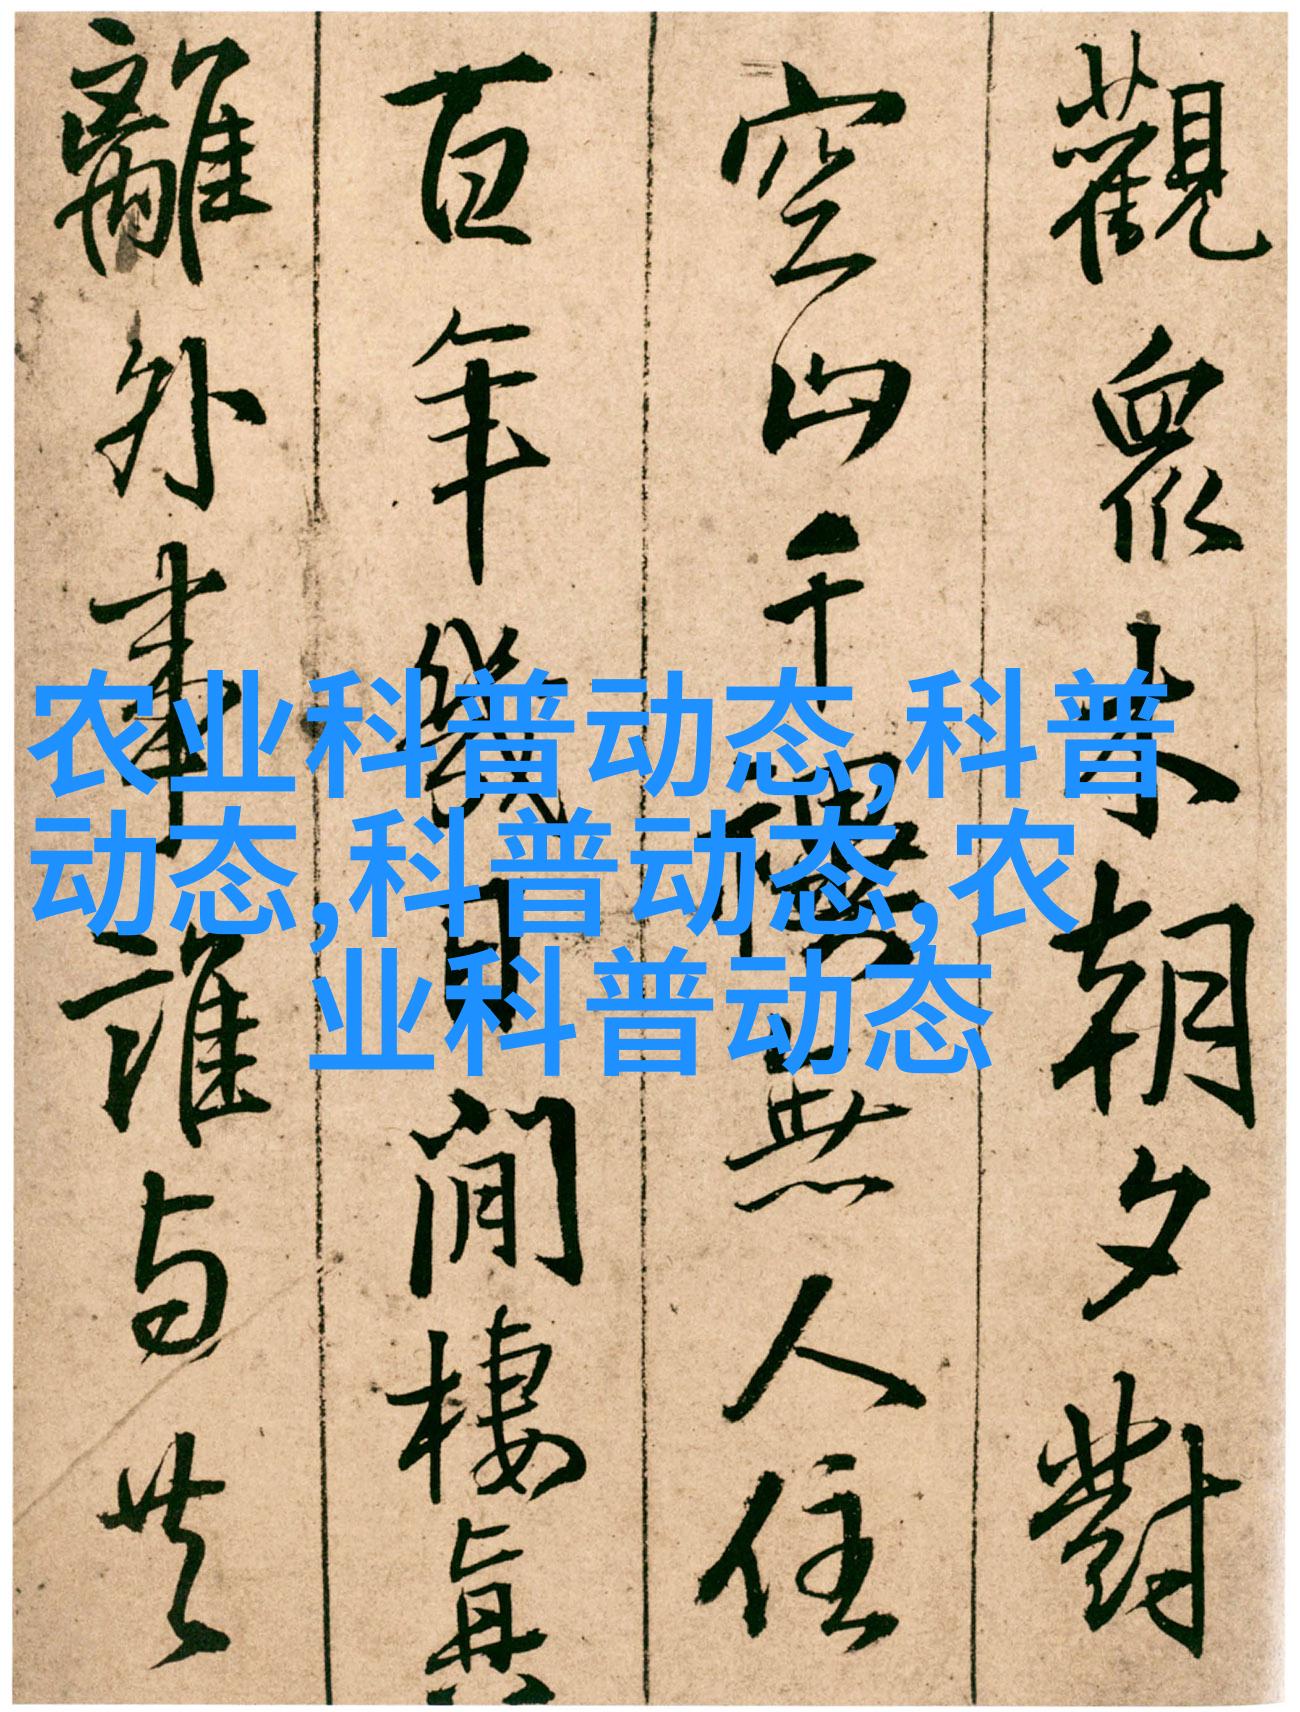 觀眾未朝夕對
空山千無人住
百年幾日閒棲真
離外事誰与共
农业科普动态,科普
动态,科普动态,农
业科普动态